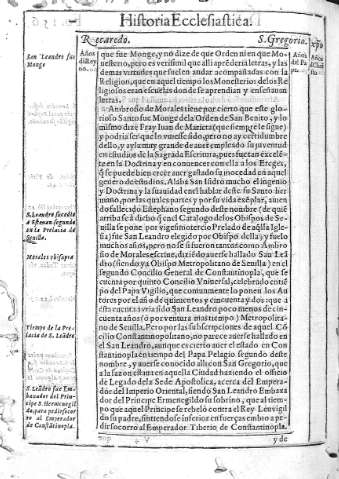 Historia Ecclesiastica.
Recaredo. S. Gregorio.
Años del Rey no.
Años del Pa pa.
San Leandro fue Monge
que fue Monge, y no dize de que Orden ni en que Mo-
nesterio, pero es verisimil que alli aprederia letras, y las
demas virtudes que suelen andar acompañadas con la
Religion, que en aquel tiempo los Monesterios de los Re-
ligiosos eran escuelas donde se aprendian y enseñauan
letras.
Ambrosio de Morales tiene por cierto que este glo-
rioso Santo fue Monge de la Orden de San Benito, y lo
mismo dize Fray Iuan de Marieta (que siempre le sigue)
y podria ser que lo vuiesse sido, pero no ay certidumbre
dello, y ay la muy grande de auer empleado su juuentud
en estudios de la Sagrada Escritura, pues fue tan excelē-
te en la Doctrina y en conuencer con ella a los Ereges,
q̃ se puede bien creer auer gastado su mocedad en aquel
genero de estudios. Alaba San Isidro mucho el ingenio
y Doctrina y la suauidad en el hablar deste su Santo her-
mano, por las quales partes y por su vida exẽplar, auien-
do fallecido Estephano segundo deste nombre (de quē
arriba se à dicho q̃ en el Catalogo de los Obispos de Se-
uilla se pone por vigesimotercio Prelado de aq̃lla Igle-
sia) fue San Leandro elegido por Obispo della, y fuelo
muchos años, pero no se si fueron tantos como Ambro
sio de Morales escriue, diziẽdo auerse hallado San Leā
dro (siendo ya Obispo Metropolitano de Seuilla) en el
segundo Concilio General de Constantinopla, que se
cuenta por quinto Concilio Vniuersal, celebrado en tiē
po del Papa Vigilio, que comunmente lo ponen los Au
tores por el año de quinientos y cincuenta y dos que a
esta cuenta vuiera sido San Leandro poco menos de cin
cuenta años (ò por ventura mas tiempo) Metropolita-
no de Seuilla. Pero por las subscripciones de aquel Cō
cilio Constantinopolitano, no parece auerse hallado en
el San Leandro, aunque es cierto auer el estado en Con
stantinopla en tiempo del Papa Pelagio segundo deste
nombre, y auerse conocido alli con San Gregorio, que
a la sazon estaua en aquella Ciudad haziendo el officio
de Legado de la Sede Apostolica, acerca del Empera-
dor del Imperio Oriental, siendo San Leandro Embaxa
dor del Principe Ermenegildo su sobrino, que al tiem-
po que aquel Principe se rebelò contra el Rey Leuuigil
do su padre, sintiendose inferior en fuerças embio a pe-
dir socorro al Emperador Tiberio de Constantinopla.
S. Leandro sucediò a Esteuan segundo en la Prelacia de Seuilla.
Morales
Tiempo de la Pre lacia de S. Leādro
S. Leandro fue Em baxador del Prin cipe S. Hermenegil do, para pedir socor ro al Emperador de Constātinopla.
y de